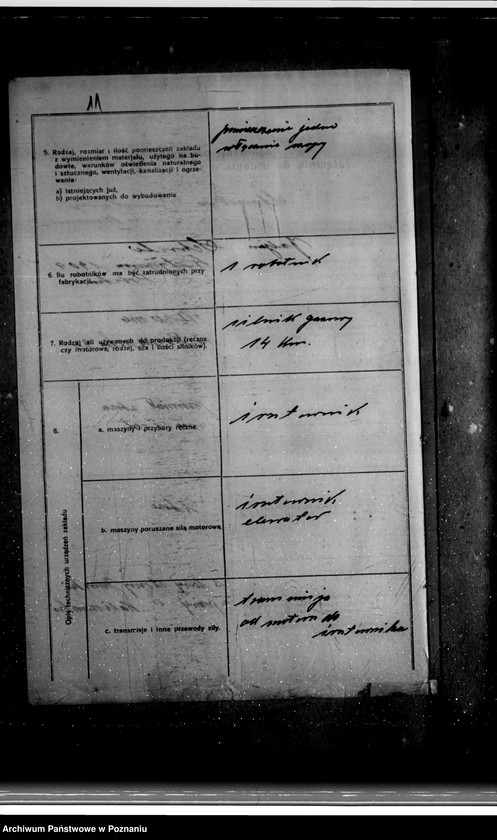 11
5. Rodzaj, rozmiar i ilość pomieszczeń zakładu
z wymienieniem materjału, użytego na bu-
dowie, warunków oświetlenia naturalnego
i sztucznego, wentylacji, kanalizacji i ogrze-
wania:
a) istniejących już,
b) projektowanych do wybudowania
pomieszczenie jedno
6. Ilu robotników ma być zatrudnionych przy
fabrykacji
1 robotnik
7. Rodzaj sił używanych do produkcji (ręczna
czy motorowa; rodzaj, siła i ilości silników).
silnik gazowy
14 km.
8.
Opis technicznych urządzeń zakładu
a. maszyny i przybory ręczne.
śrutownik
b. maszyny poruszane siłą motorową.
śrutownik
elewator
c. transmisje i inne przewody siły.
transmisja
od motora do
śrutownika
Archiwum Państwowe w Poznaniu